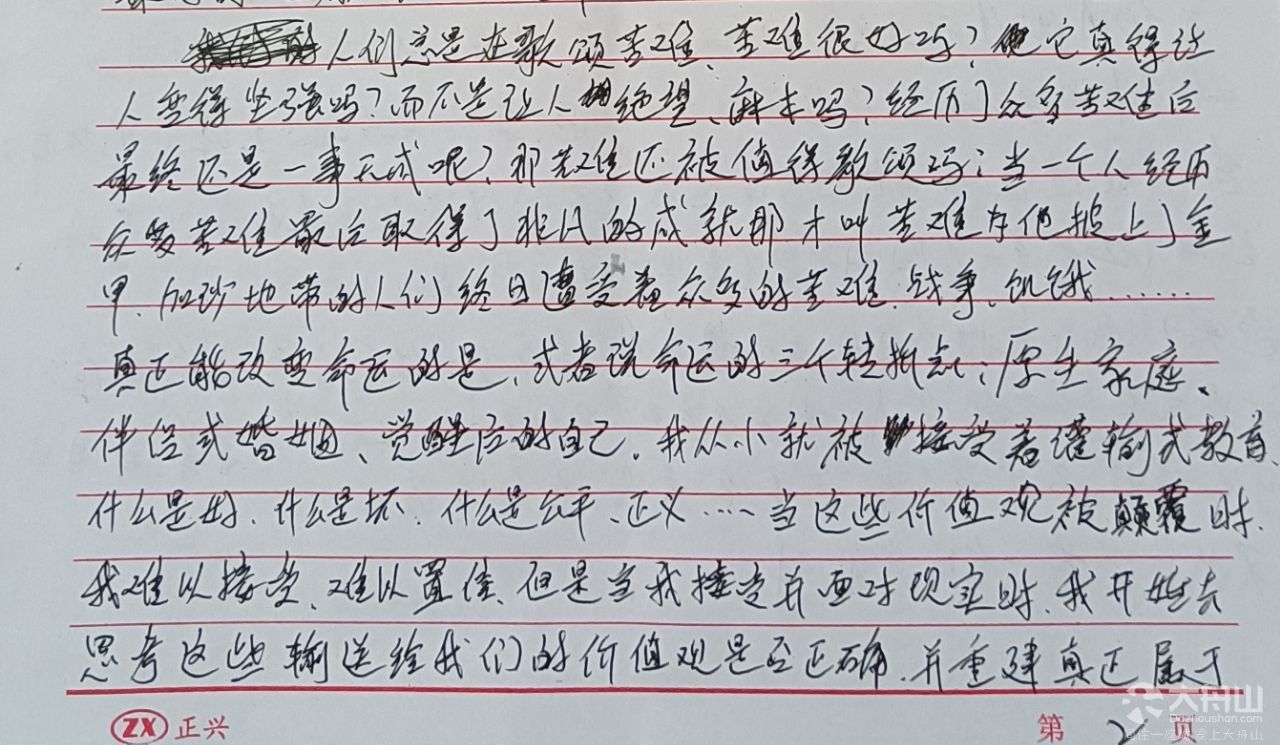 人们总是在歌颂苦难、苦难很好吗？它真得让
人变得坚强吗？而不是让人绝望、麻木吗？经历了众多苦难后
最终还是一事无成呢？那苦难还被值得歌颂吗？当一个人经历
众多苦难最后取得了非凡的成就那才叫苦难为他披上了金
甲、加沙地带的人们终日遭受着众多的苦难、战争、饥饿……
真正能改变命运的是、或者说命运的三个转折点：原生家庭、
伴侣式婚姻、觉醒后的自己。我从小就被接受着灌输式教育、
什么是好、什么是坏、什么是公平、正义……当这些价值观被颠覆时、
我难以接受、难以置信、但是当我接受并面对现实时、我开始去
思考这些输送给我们的价值观是否正确、并重建真正属于
ZX 正兴
第 2 页
大舟山
Dazhoushan.com
爱上大舟山